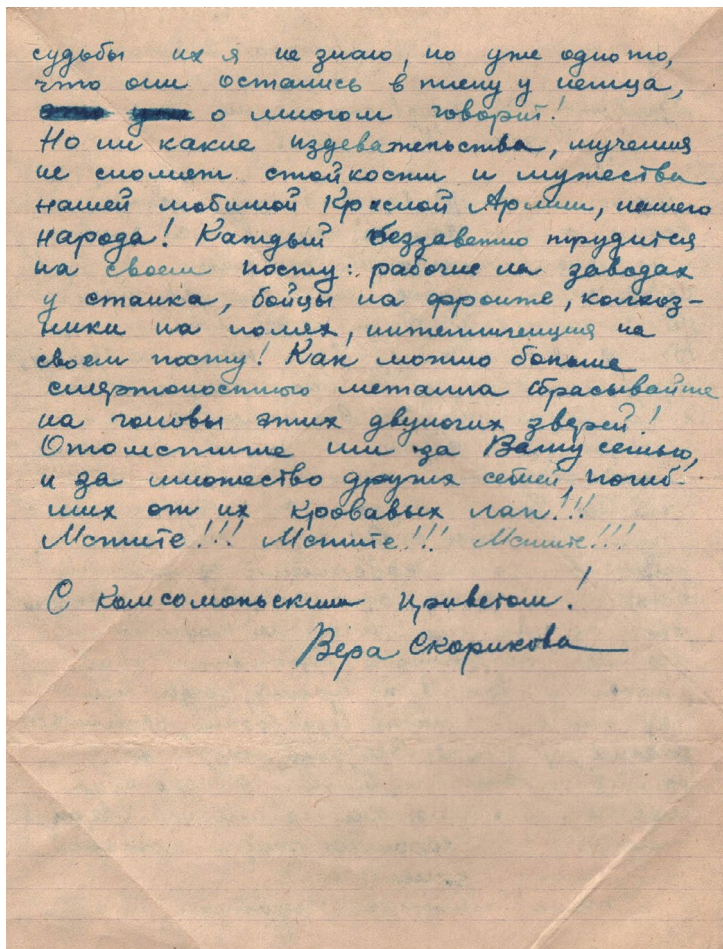 судьбы их я не знаю, но уже одно то,
что они остались в плену у немца,
о многом говорит!
Но ни какие издевательства, мучения
не сломят стойкости и мужества
нашей любимой Красной Армии, нашего
народа! Каждый беззаветно трудится
на своем посту: рабочие на заводах
у станка, бойцы на фронте, колхоз-
ники на полях, интеллигенция на
своем посту! Как можно больше
смертоностного металла сбрасывайте
на головы этих двуногих зверей!
Отомстите им за Вашу семью,
и за множество других семей, погиб-
ших от их кровавых лап!!!
Мстите!!! Мстите!!! Мстите!!!
С комсомольским приветом!
Вера Скорикова